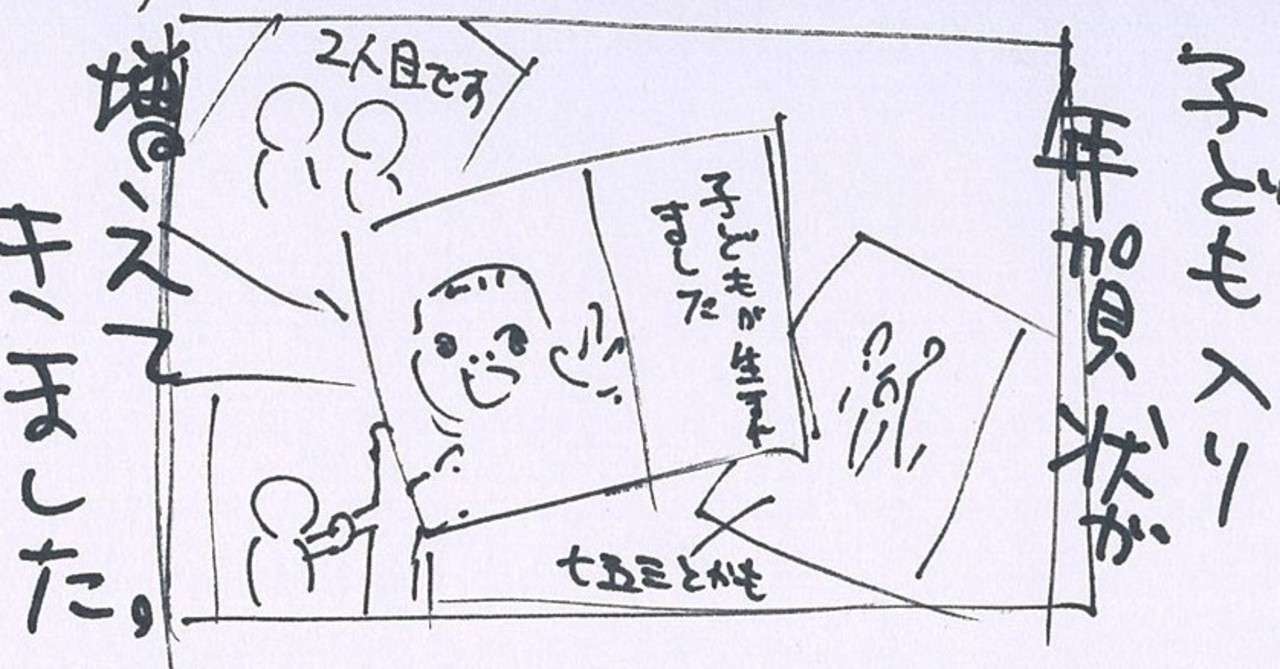 子ども入り
年賀状が
増えて
きました。
2人目です
子どもが生まれ
ました
七五三とかも